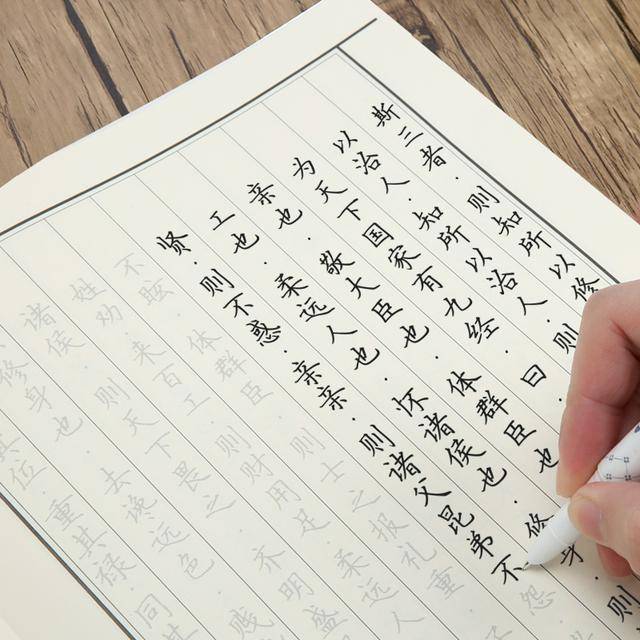 斯三者·则知所以修
以治人·知所以治人·则
为天下国家有九经·曰
亲也·敬大臣也·体群臣也
工也·柔远人也·怀诸侯也·修身·则
贤·则不惑·亲亲·则诸父昆弟不怨
不眩·体群臣·则士之报礼重
姓劝·来百工·则财用足·柔远人
诸侯·则天下畏之·齐明盛
修身也·去谗远色·贱
其位·重其禄·同其